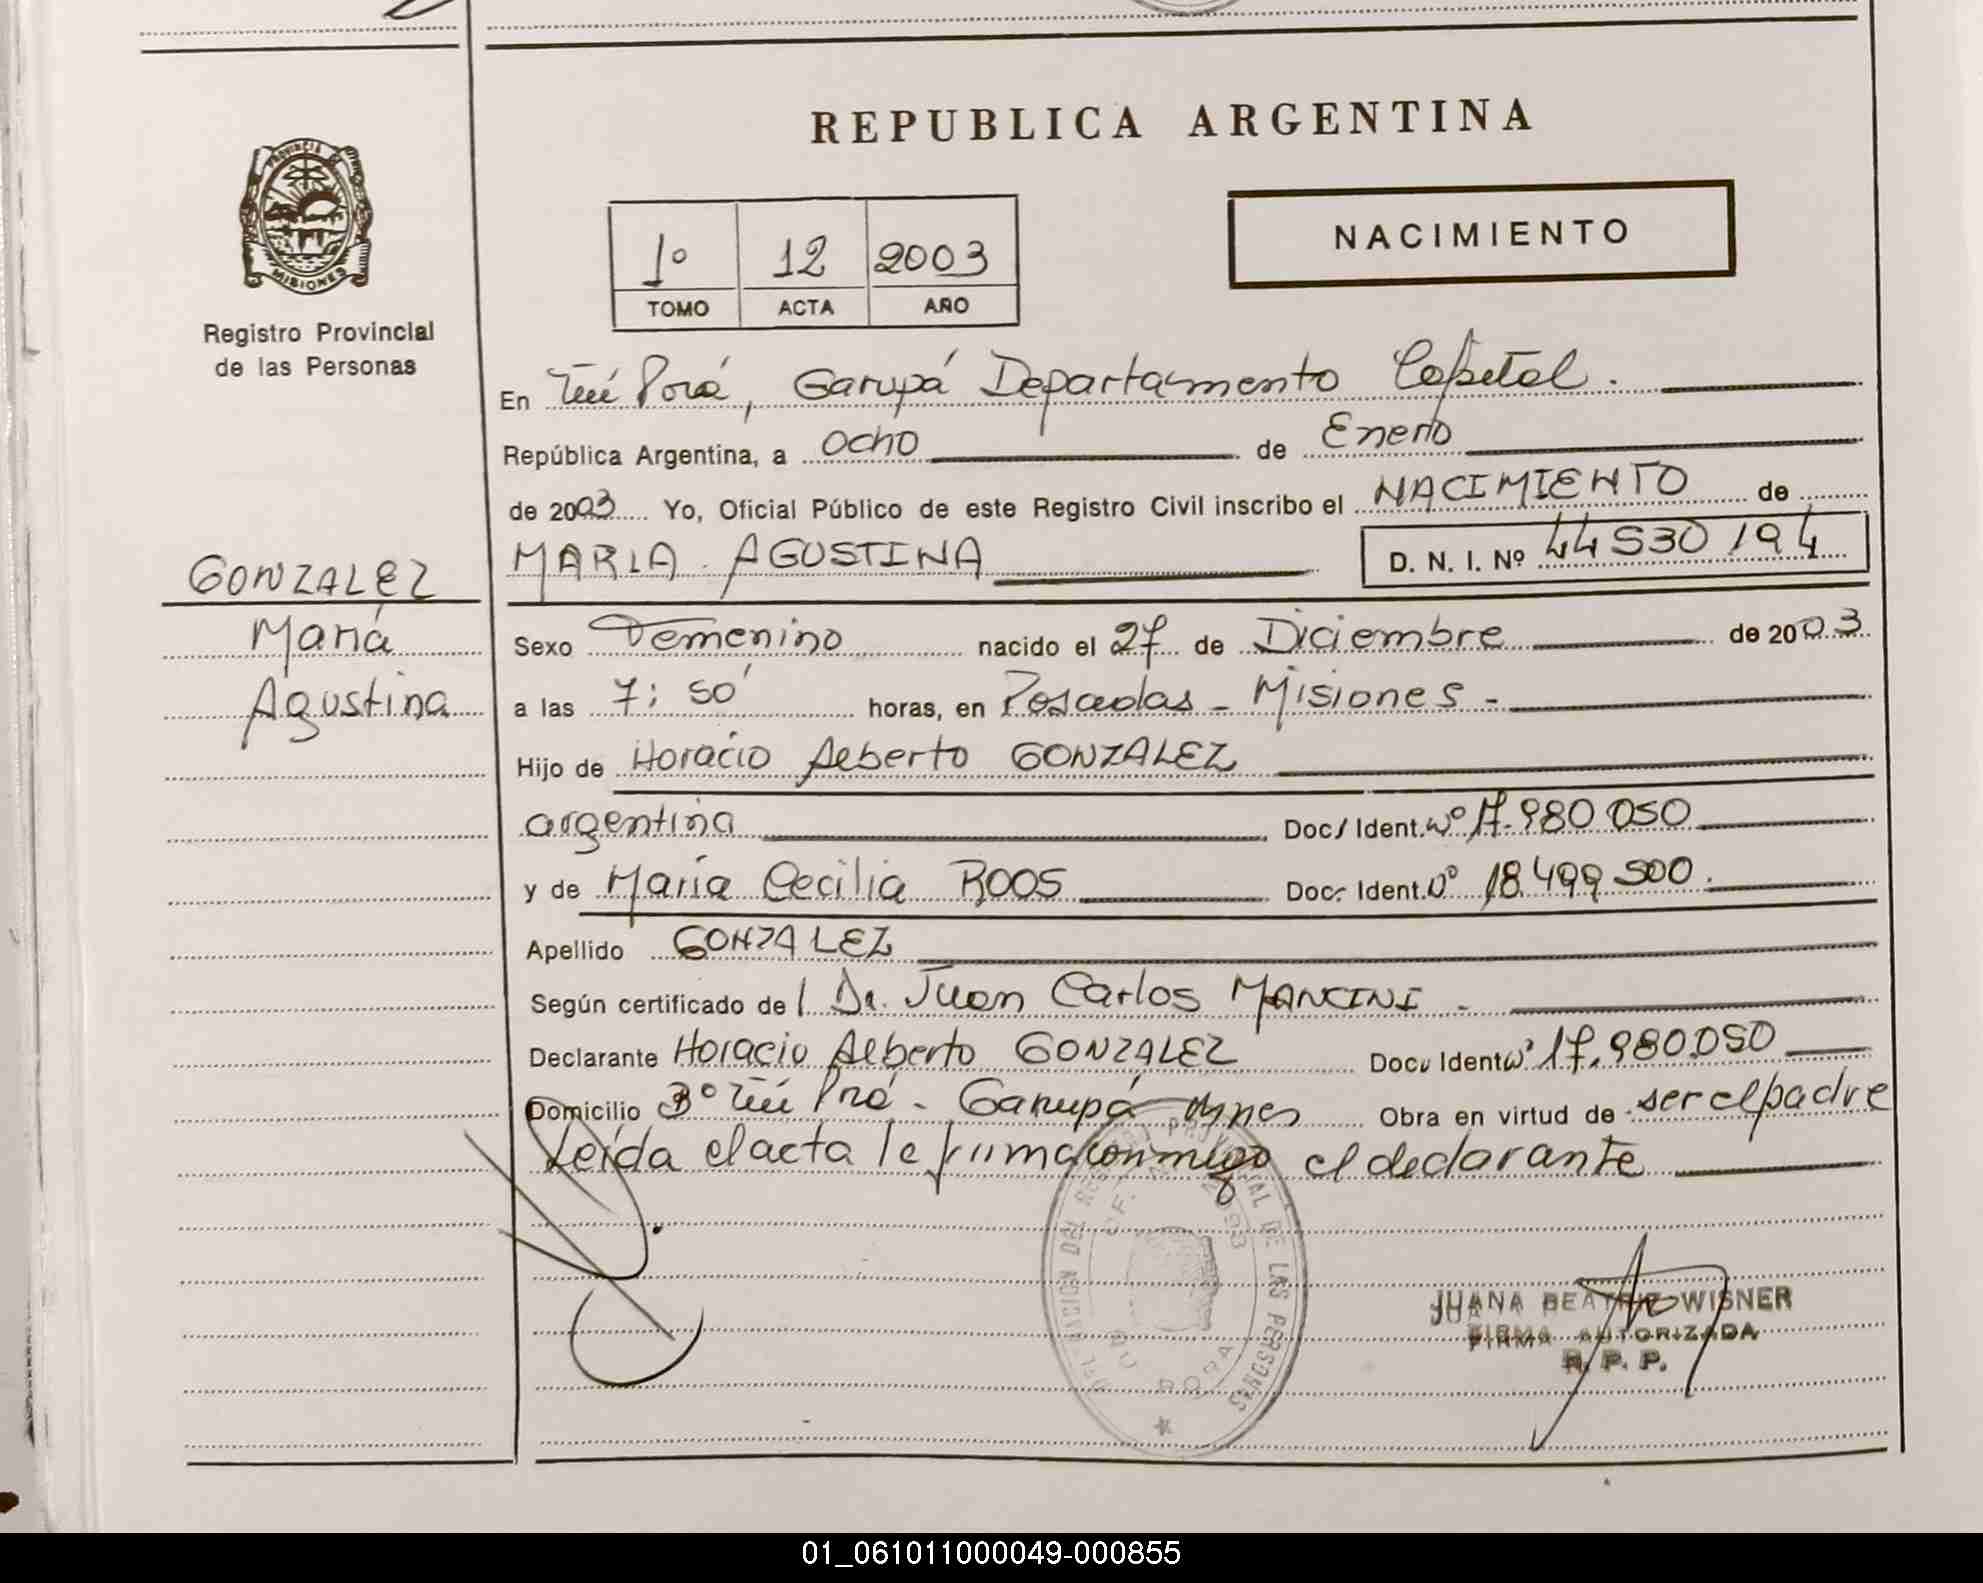 REPUBLICA ARGENTINA
PROVINCIA DE
MISIONES
Registro Provincial
de las Personas
1º 12 2003
TOMO ACTA AÑO
NACIMIENTO
En Tuí Porá, Garupá Departamento Capital.
República Argentina, a ocho de Enero
de 2003 Yo, Oficial Público de este Registro Civil inscribo el NACIMIENTO de
MARIA AGUSTINA D. N. I. Nº 44530194
GONZALEZ
María
Agustina
Sexo Femenino nacido el 27 de Diciembre de 2003
a las 7:50' horas, en Posadas - Misiones -
Hijo de Horacio Alberto GONZALEZ
argentina Doc/ Ident. Nº 17.980 050
y de María Cecilia ROOS Doc. Ident. Nº 18.499 500.
Apellido GONZALEZ
Según certificado de l Dr. Juan Carlos MANCINI -
Declarante Horacio Alberto GONZALEZ Docu Ident Nº 17.980.050
Domicilio Bº Tuí Porá - Garupá - Mnes Obra en virtud de ser el padre
Leída el acta la firma conmigo el declarante
DEL REGISTRO PROVINCIAL DE LAS PERSONAS
PORA
JUANA BEATRIZ WISNER
FIRMA AUTORIZADA
R. P. P.
01_061011000049-000855